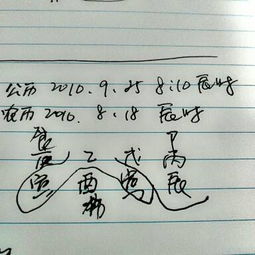 公历 2010.9.25 8:10 辰时
农历 2010.8.18 辰时
庚 乙 戊 丙
寅 酉 寅 辰